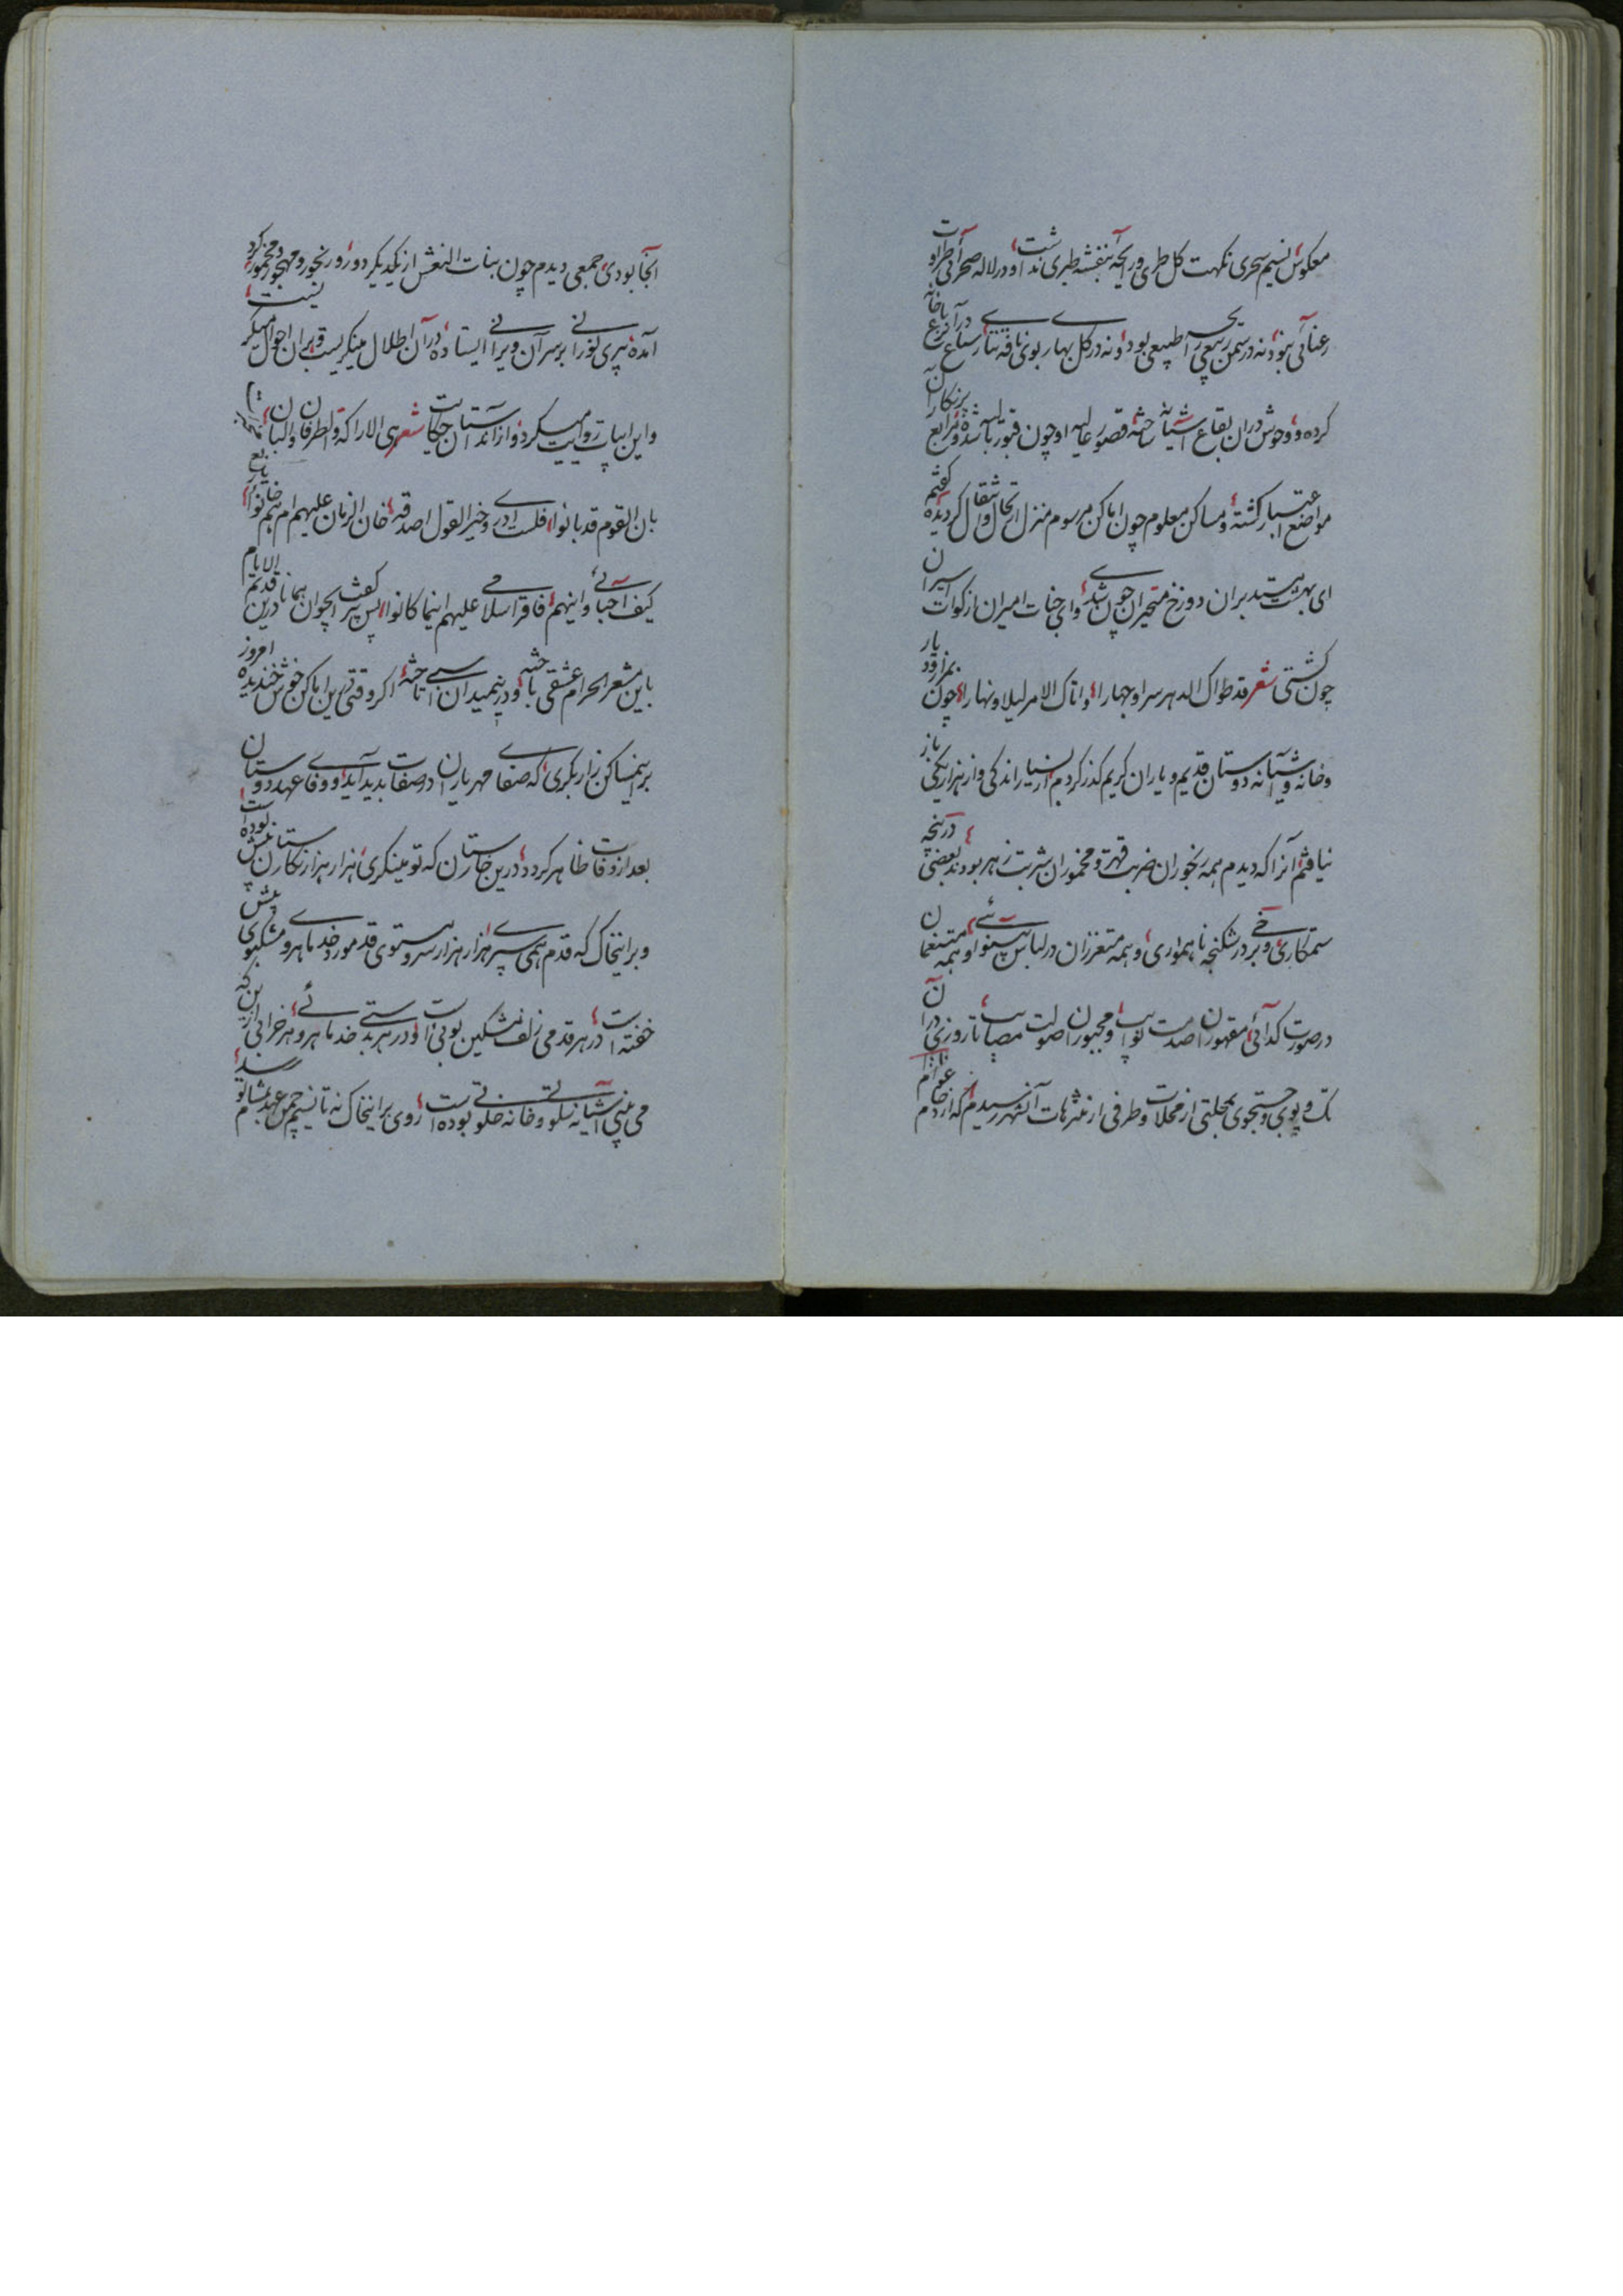 معکوس نسیم سحری نکهت گل طری و رایحه بنفشه طبری نداشت و در لاله صحرائی طراوت
رعنائی نبود نه در سمن ربیعی رایحه طبیعی بود و نه در گل بهار بوی نافه تتار سباع در آن رباع خانه
کرده و وحوش در آن بقاع آشیانه ساخته قصور عالیه او چون قبور بالیه شده و مرابع پرنگار آن
مواضع اعتبار گشته و مساکن معلوم چون اماکن مرسوم منزل ارتحال و انتقال گردیده گفتم
ای بهشت سیرت بدین دوزخ متحیران چون شدی و ای جنات امیران از کوات اسیران
چون گشتی شعر قد طواک الدهر سرا و جهارا و اتاک الامر لیلا و نهارا چون بمزار و دیار
و خانه و آشیانه دوستان قدیم و یاران کریم گذر کردم از بسیار اندکی و از هزار یکی باز
نیافتم آنرا که دیدم همه رنجوران ضربت قهر و مخموران شربت زهر بودند بعضی در پنجه
ستمکاری و برخی در شکنجه ناهمواری و همه متعززان در لباس بینوائی و همه متنعمان
در صورت گدائی مقهوران صدمت نوایب و مجبوران صولت مصایب تا روزی در آن
تک و پوی و جستجوی بمحلتی از محلات و طرفی از متنزهات آن شهر رسیدم که ازدحام عوام
آنجا بودی جمعی دیدم چون بنات النعش از یکدیگر دور و رنجور و مهجور و مخمور گرد
آمده پیری نورانی بر سر آن ویرانی ایستاده در آن اطلال مینگریست و بر آن احوال میگریست
و این ابیات روایت میکرد و از آن داستان حکایت شعر هی الاراکة والطرفاء والبان
بان القوم قد بانوا فلست ادری و خیر القول اصدقه خان الزمان علیهم ام هم خانوا
کیف احبائی و اینهم فاقرا سلامی علیهم اینما کانوا پس پیر گفت ای جوان همانا در قدیم الایام
باین مشعر الحرام عشقی باخته و در این میدان اسبی تاخته اگر وقتی درین اماکن خوش خندیده امروز
برین مساکن زار بگری که صفای مهر یاران در صفات بدید آید و وفای عهد دوستان
بعد از وفات ظاهر گردد درین خارستان که تو مینگری هزار هزار نگارستان بیش بوده است
و بر این خاک که قدم همی سپری هزار هزار سرو مستوی قد مورد خد ماهروی مشکبوی بیش
خفته است در هر قدمی زلف مشکین بوئی است و در هر بدستی خد ماهروئی هر خرابی ازین که
می بینی آشیانه سلوتی و خانه خلوتی بوده است روی بر این خاک نه تا نسیم چمن عهد بمشام تو رسد